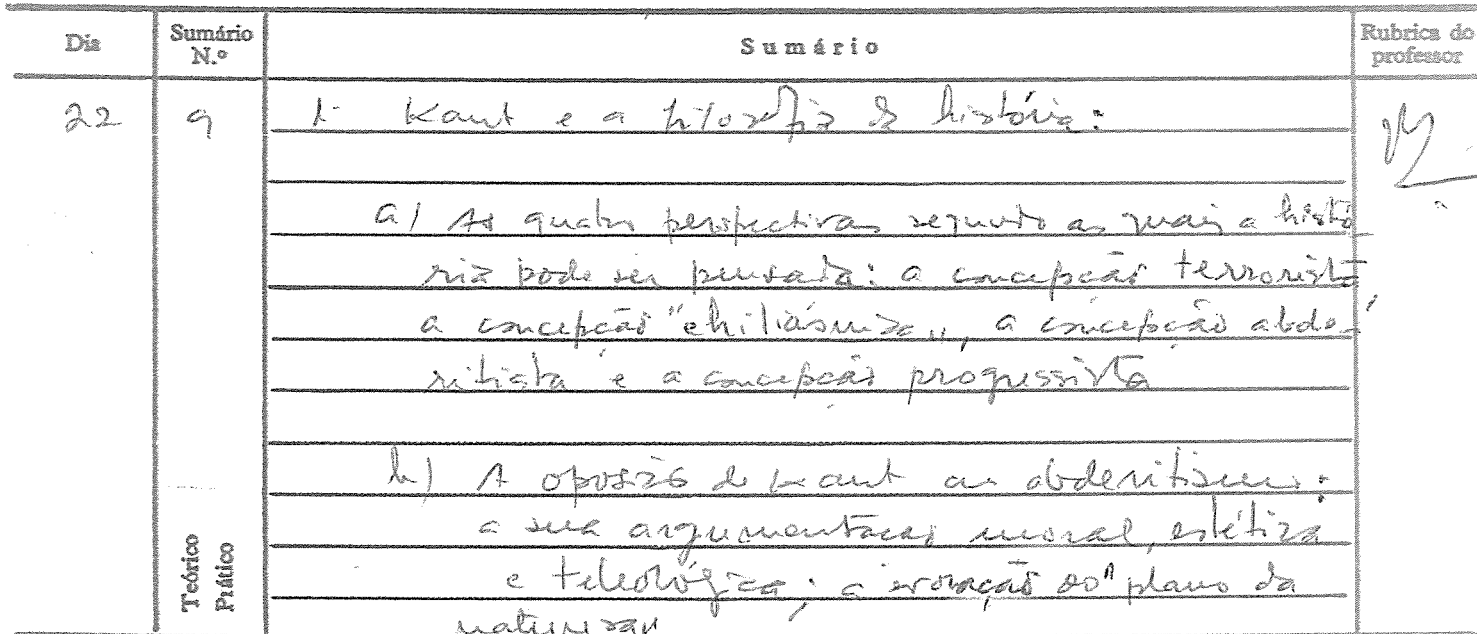 Dia Sumário N.º Sumário Rubrica do professor
22 9 1- Kant e a filosofia da história:
a) As quatro perspectivas segundo as quais a histó
ria pode ser pensada: a concepção terrorista,
a concepção "chiliásmica", a concepção abde-
ritista e a concepção progressista
b) A oposição de Kant ao abderitismo:
a sua argumentação moral, estética
e teleológica; a evocação do "plano da
natureza"
Teórico
Prático